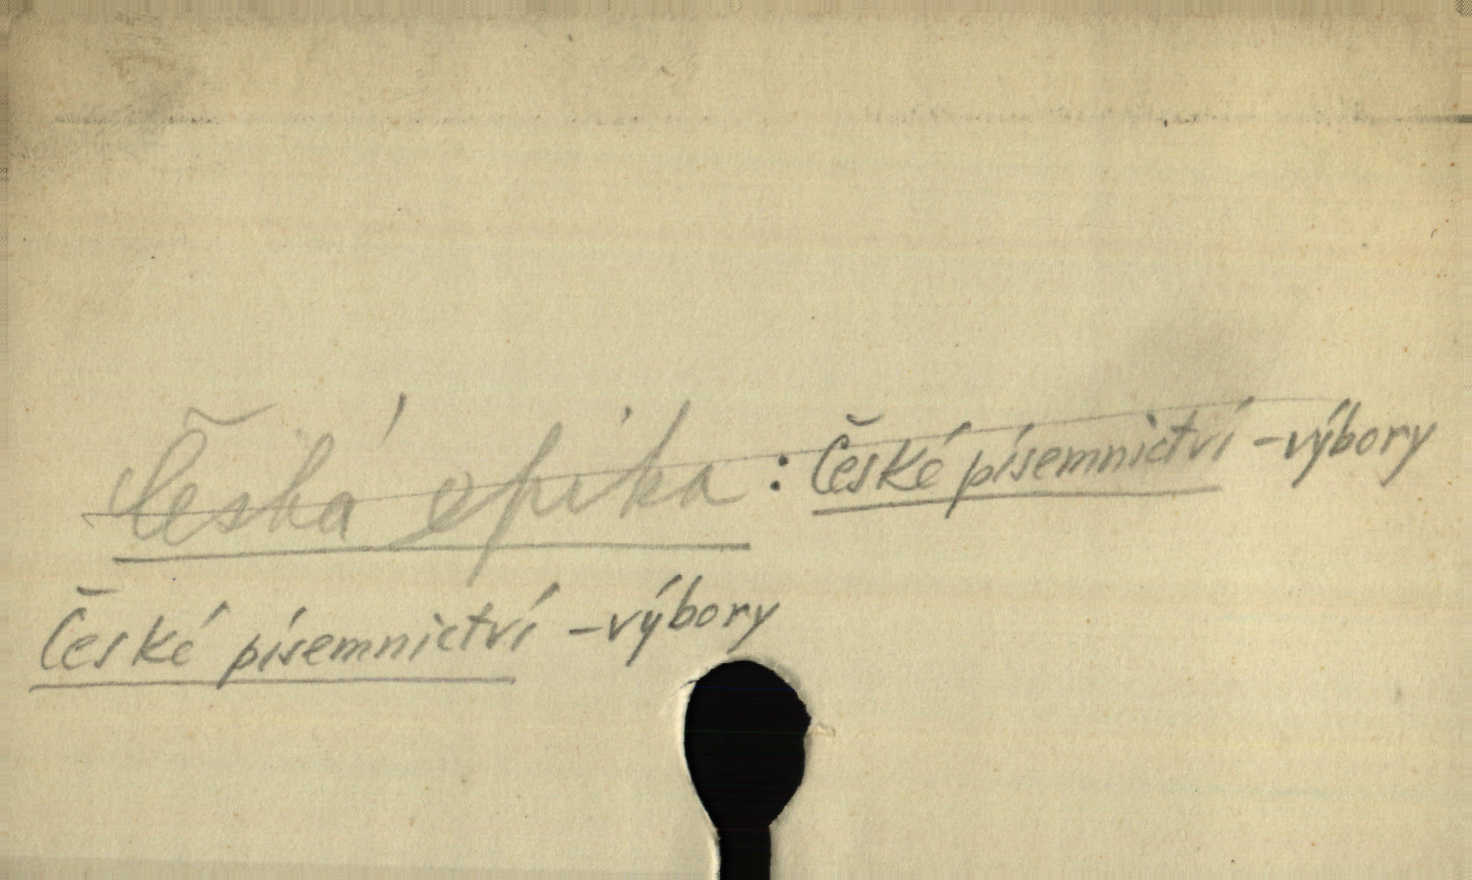 Česká epika : České písemnictví - výbory
České písemnictví - výbory